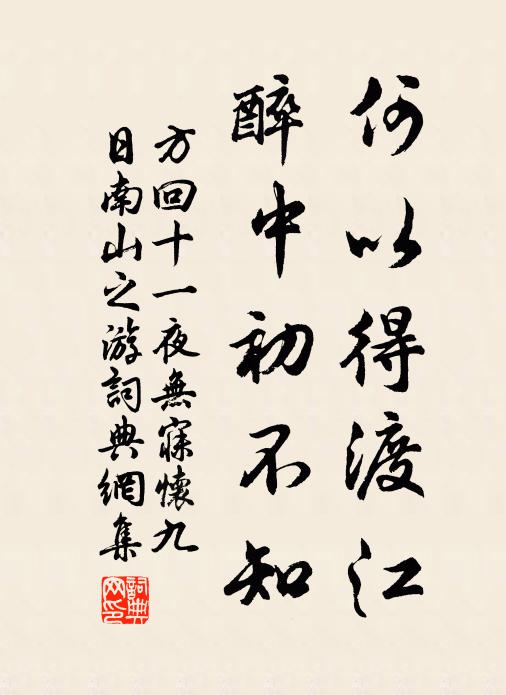 何以得渡江
醉中初不知
方回十一夜無寐懷九
日南山之游詞典網集
詞典
网印